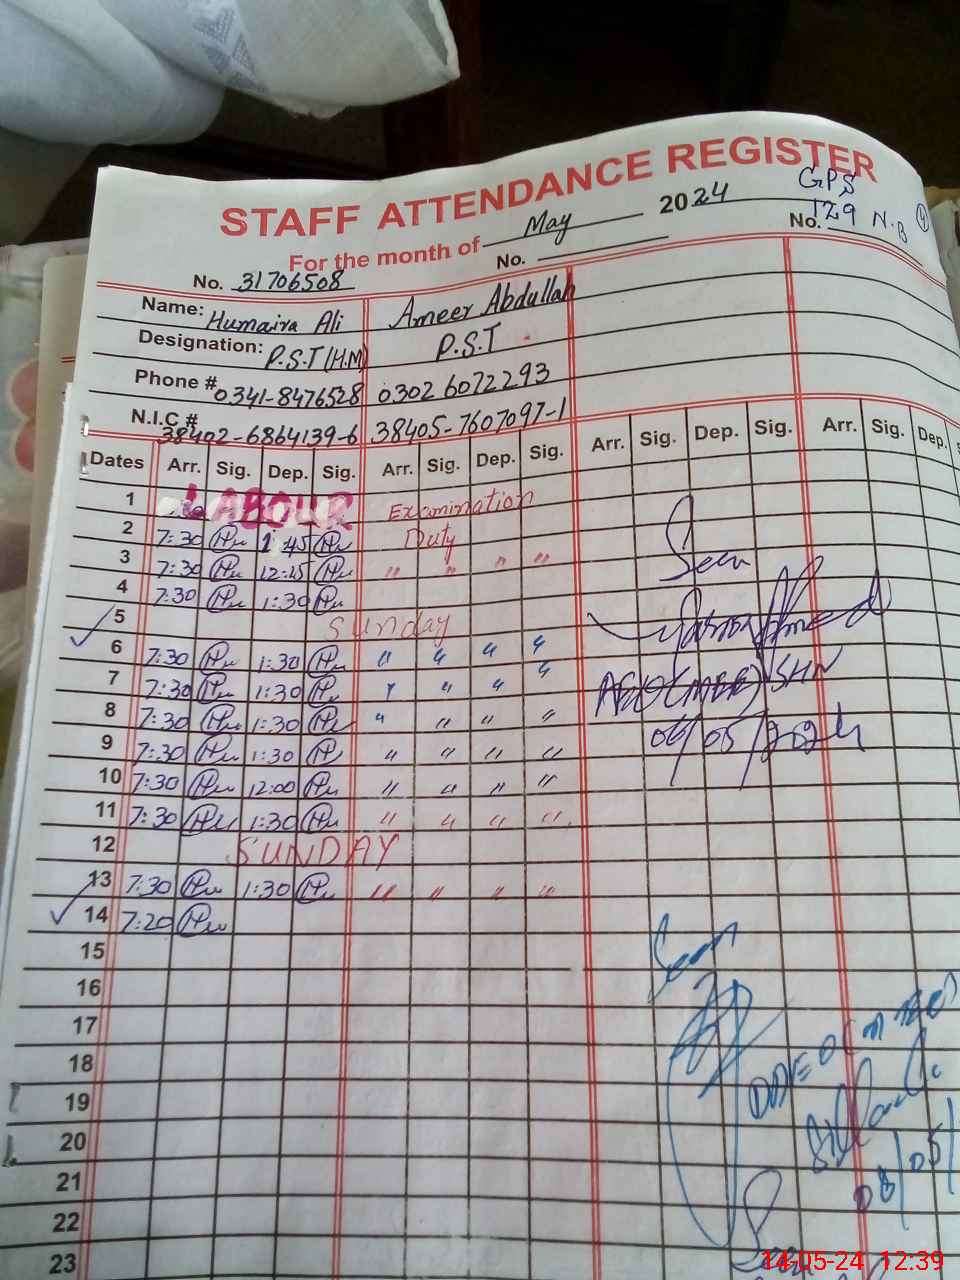 STAFF ATTENDANCE REGISTER
GPS
For the month of May 2024 No. 129 N.B
No. 31706508 No.
Name: Humaira Ali Ameer Abdullah
Designation: P.S.T (H.M) P.S.T
Phone # 0341-8476528 0302 6072293
N.I.C.# 38402-6864139-6 38405-7607097-1
Dates Arr. Sig. Dep. Sig. Arr. Sig. Dep. Sig. Arr. Sig. Dep. Sig. Arr. Sig. Dep.
1 LABOUR Examination
2 7:30 1:45 Duty
3 7:30 12:15 " " " "
4 7:30 1:30
5 Sunday
6 7:30 1:30 " " " "
7 7:30 1:30 " " "
8 7:30 1:30 " " " "
9 7:30 1:30 " " " "
10 7:30 12:00 " " " "
11 7:30 1:30 " " " "
12 SUNDAY
13 7:30 1:30 " " " "
14 7:20
15
16
17
18
19
20
21
22
23
Seen
06/05/2024
Seen
08/05/
Seen
14-05-24 12:39